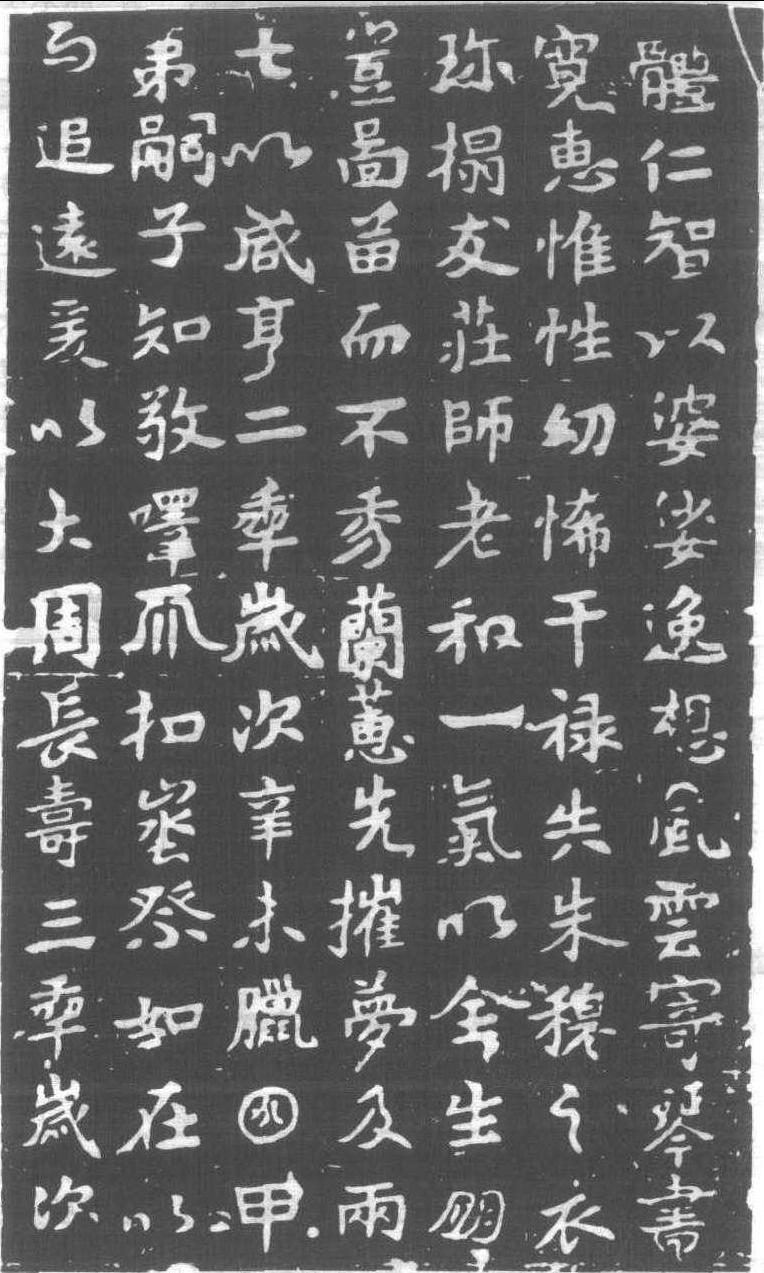 體仁智以婆娑逸想風雲寄琴書
寬惠惟性幼怖干祿失朱穆之衣
珎搨友莊師老和一氣以全生
豈啚苗而不秀蘭蕙先摧夢及兩
七以咸亨二年歲次辛未臘囝甲
弟嗣子知敬嘷爪扣坐祭如在以
与追遠爰以大周長壽三年歲次